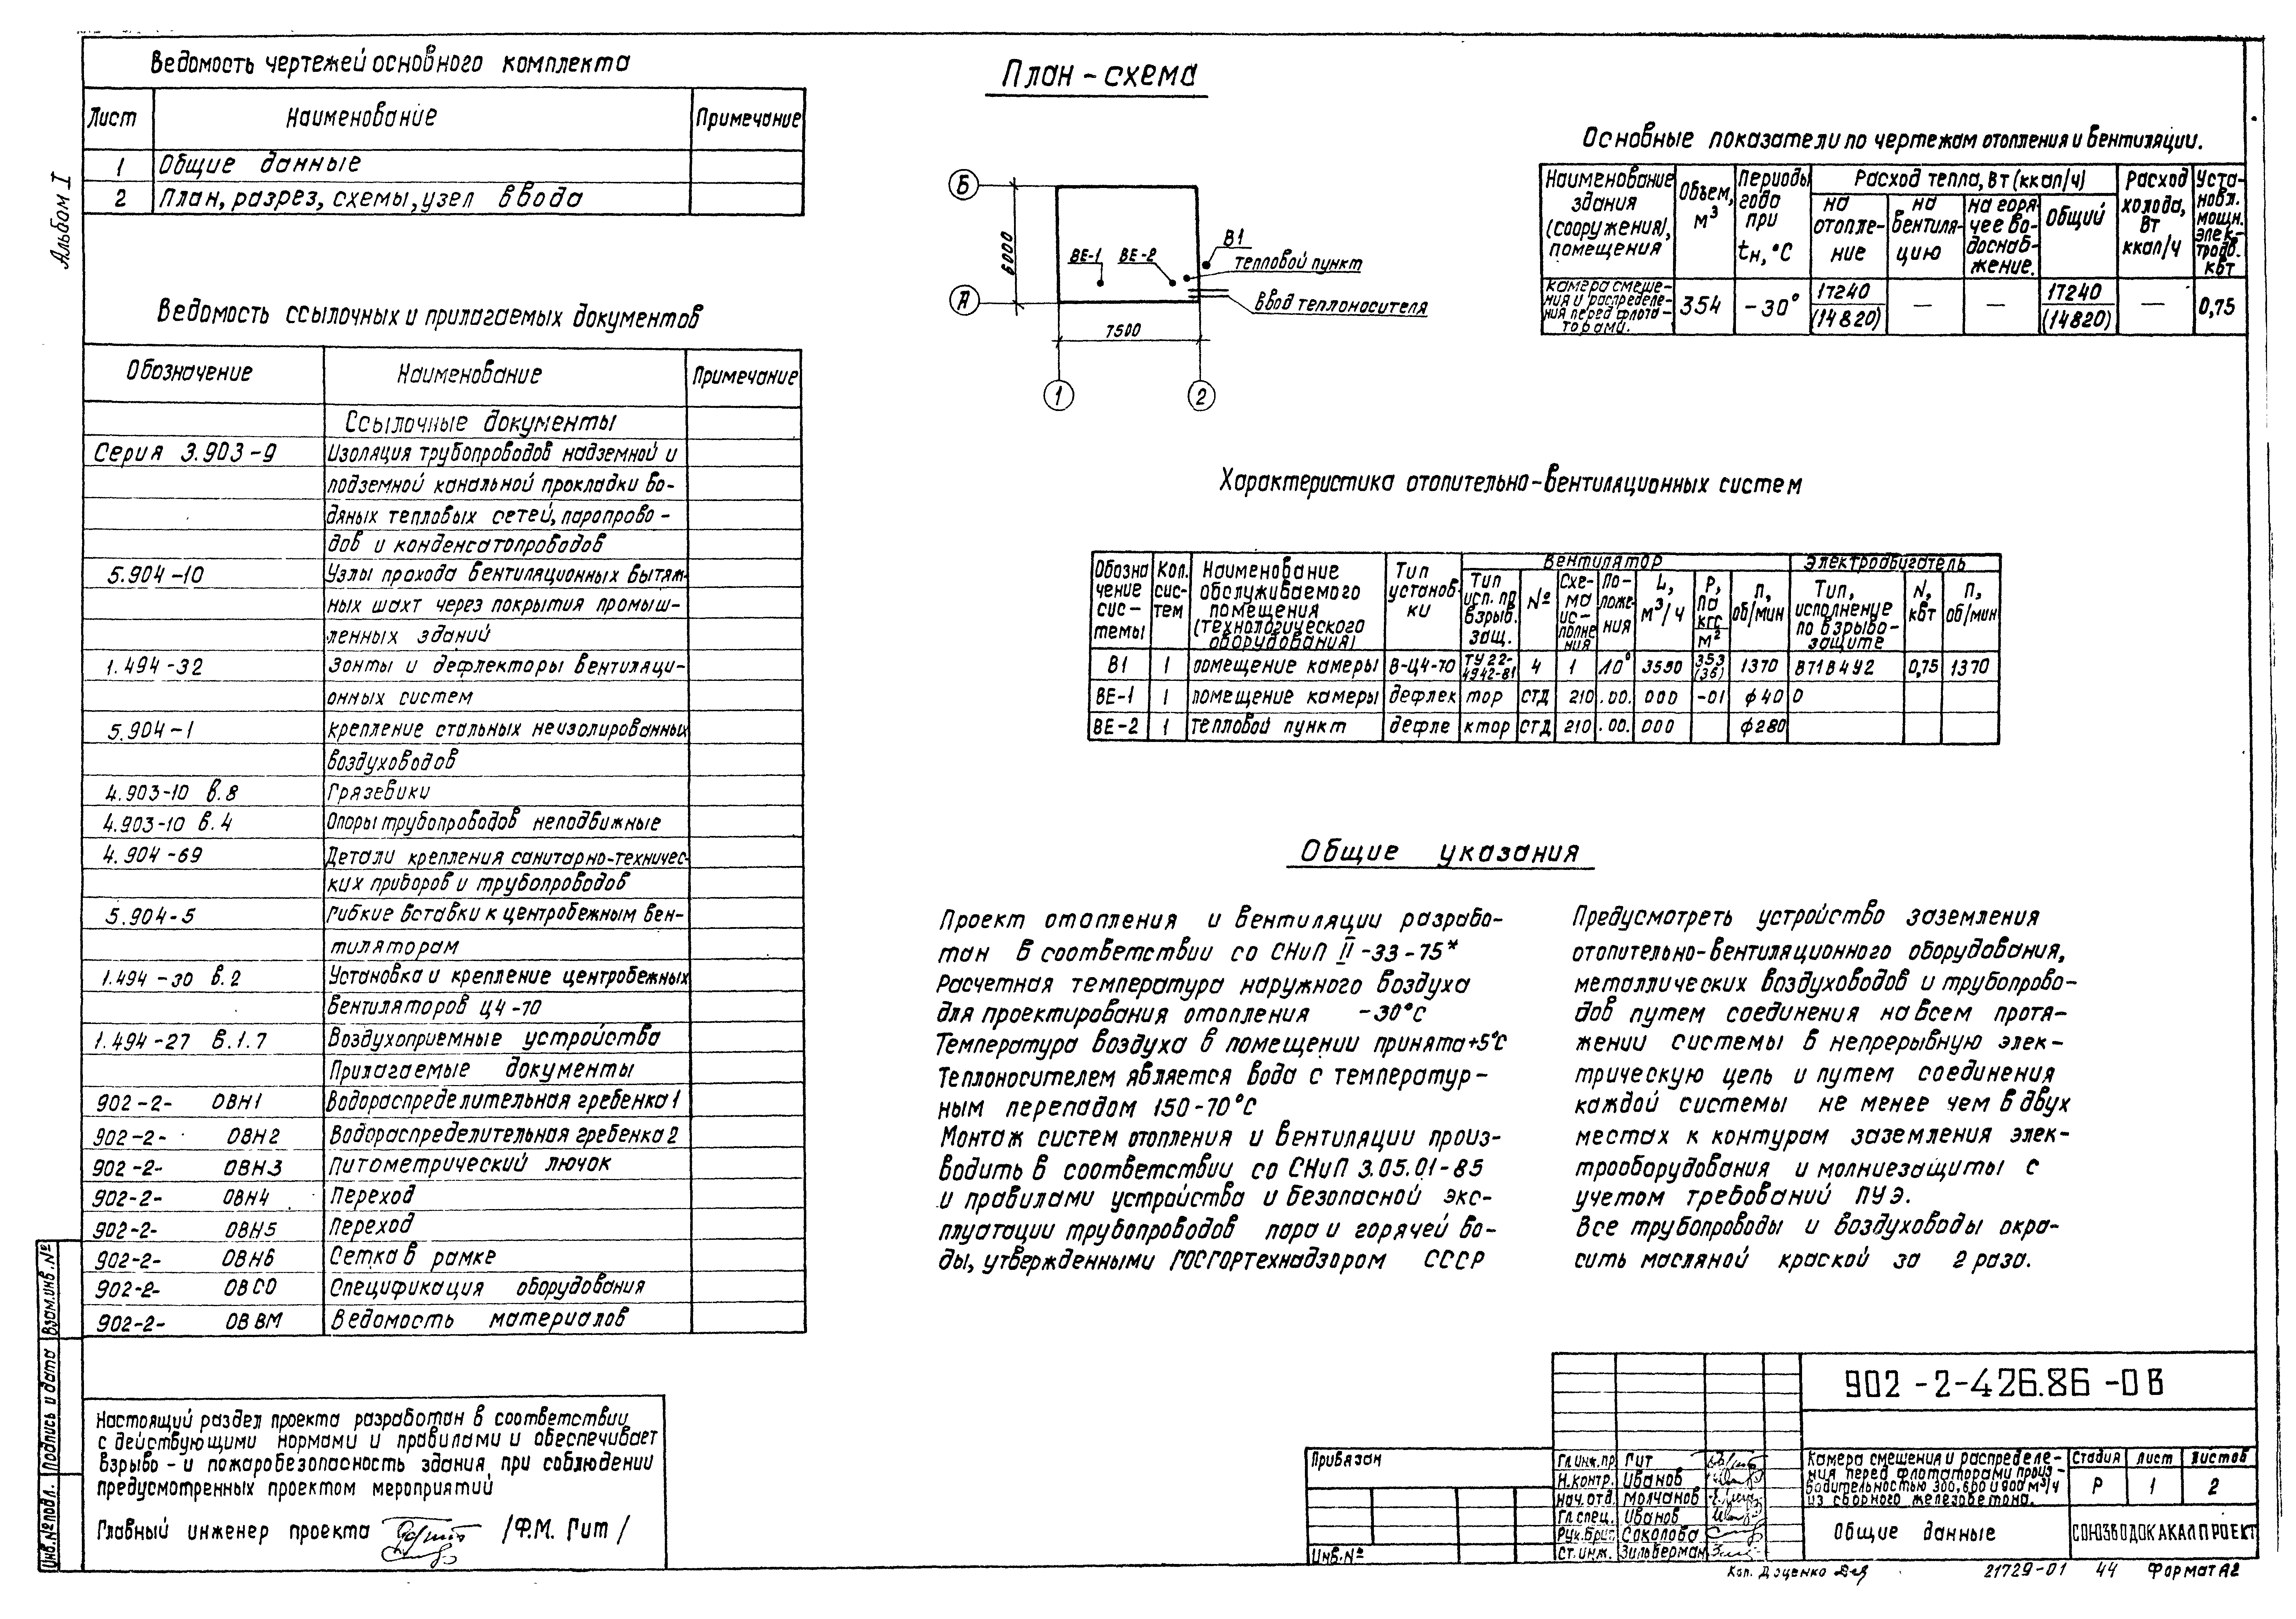 Альбом I
Ведомость чертежей основного комплекта
Лист Наименование Примечание
1 Общие данные
2 План, разрез, схемы, узел ввода
Ведомость ссылочных и прилагаемых документов
Обозначение Наименование Примечание
Ссылочные документы
Серия 3.903-9 Изоляция трубопроводов надземной и
подземной канальной прокладки во-
дяных тепловых сетей, паропрово-
дов и конденсатопроводов
5.904-10 Узлы прохода вентиляционных вытяж-
ных шахт через покрытия промыш-
ленных зданий
1.494-32 Зонты и дефлекторы вентиляци-
онных систем
5.904-1 крепление стальных неизолированных
воздуховодов
4.903-10 в.8 Грязевики
4.903-10 в.4 Опоры трубопроводов неподвижные
4.904-69 Детали крепления санитарно-техничес-
ких приборов и трубопроводов
5.904-5 Гибкие вставки к центробежным вен-
тиляторам
1.494-30 в.2 Установка и крепление центробежных
вентиляторов Ц4-70
1.494-27 в.1.7 Воздухоприемные устройства
Прилагаемые документы
902-2- ОВН1 Водораспределительная гребенка 1
902-2- ОВН2 Водораспределительная гребенка 2
902-2- ОВН3 Питометрический лючок
902-2- ОВН4 Переход
902-2- ОВН5 Переход
902-2- ОВН6 Сетка в рамке
902-2- ОВСО Спецификация оборудования
902-2- ОВВМ Ведомость материалов
Настоящий раздел проекта разработан в соответствии
с действующими нормами и правилами и обеспечивает
взрыво- и пожаробезопасность здания при соблюдении
предусмотренных проектом мероприятий
Главный инженер проекта /Ф.М. Гит/
Инв.№ подл. Подпись и дата Взам.инв.№
План-схема
Б
А
6000
7500
1
2
ВЕ-1 ВЕ-2
В1
тепловой пункт
Ввод теплоносителя
Основные показатели по чертежам отопления и вентиляции.
Наименование здания (сооружения), помещения
Объем, м³
Периоды года при tн, °С
Расход тепла, Вт (ккал/ч)
на отопле-ние
на вентиля-цию
на горя-чее во-доснаб-жение.
Общий
Расход холода, Вт ккал/ч
Уста-новл. мощн. элек-тродв. кВт
камера смеше-ния и распределе-ния перед флота-торами. 354 -30° 17240 (14820) — — 17240 (14820) — 0,75
Характеристика отопительно-вентиляционных систем
Обозна чение сис-темы
Кол. сис-тем
Наименование обслуживаемого помещения (технологического оборудования)
Тип установ-ки
Вентилятор
Тип исп. по взрыв. защ.
№
Схе-ма ис-полне ния
По-ложе-ния
L, м³/ч
Р, Па кгс/м²
п, об/мин
Электродвигатель
Тип, исполнение по взрыво-защите
N, кВт
п, об/мин
В1 1 помещение камеры В-Ц4-70 ТУ22-4942-81 4 1 Л0° 3590 353 (36) 1370 В71В4У2 0,75 1370
ВЕ-1 1 помещение камеры дефлек тор СТД 210 .00. 000 -01 ф400
ВЕ-2 1 тепловой пункт дефле ктор СТД 210 .00. 000 ф280
Общие указания
Проект отопления и вентиляции разрабо-
тан в соответствии со СНиП II-33-75*
Расчетная температура наружного воздуха
для проектирования отопления -30°С
Температура воздуха в помещении принята +5°С
Теплоносителем является вода с температур-
ным перепадом 150-70°С
Монтаж систем отопления и вентиляции произ-
водить в соответствии со СНиП 3.05.01-85
и правилами устройства и безопасной экс-
плуатации трубопроводов пара и горячей во-
ды, утвержденными ГОСГОРТЕХНАДЗОРОМ СССР
Предусмотреть устройство заземления
отопительно-вентиляционного оборудования,
металлических воздуховодов и трубопрово-
дов путем соединения на всем протя-
жении системы в непрерывную элек-
трическую цепь и путем соединения
каждой системы не менее чем в двух
местах к контурам заземления элек-
трооборудования и молниезащиты с
учетом требований ПУЭ.
Все трубопроводы и воздуховоды окра-
сить масляной краской за 2 раза.
902-2-426.86-ОВ
Привязан
Инв.№
Гл.инж.пр Гит
Н.контр. Иванов
Нач.отд. Молчанов
Гл.спец. Иванов
Рук.бриг. Соколова
Ст.инж. Зильберман
Камера смешения и распределе-
ния перед флотаторами произ-
водительностью 300, 600 и 900 м³/ч
из сборного железобетона.
Стадия Лист Листов
Р 1 2
Общие данные
СОЮЗВОДОКАНАЛПРОЕКТ
Коп. Доценко
21729-01 44 Формат А2